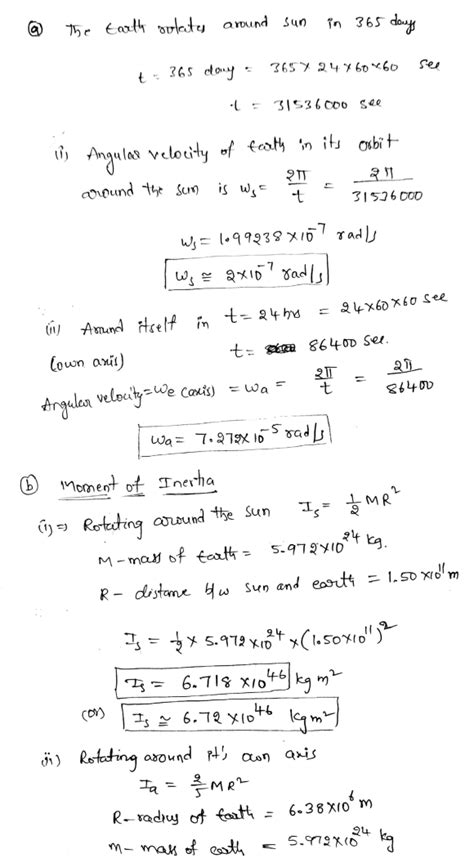 (a) The Earth rotates around sun in 365 days
t = 365 day = 365 × 24 × 60 × 60 see
t = 31536000 see
(i) Angular velocity of Earth in its orbit
around the sun is ωs = 2π/t = 2π/31536000
ωs = 1.99238 × 10^-7 rad/s
ωs ≅ 2×10^-7 rad/s
(ii) Around itself in t = 24 hrs = 24×60×60 see
(own axis) t = 86400 see.
Angular velocity = ωe (axis) = ωa = 2π/t = 2π/86400
ωa = 7.272×10^-5 rad/s
(b) Moment of Inertia
(i) ⇒ Rotating around the sun Is = 1/2 MR^2
M – mass of Earth = 5.972×10^24 kg.
R – distance b/w sun and earth = 1.50×10^11 m
Is = 1/2 × 5.972×10^24 × (1.50×10^11)^2
Is = 6.718 ×10^46 kg m^2
(or) Is ≃ 6.72 ×10^46 kg m^2
ii) Rotating around it's own axis
Ia = 2/5 MR^2
R – radius of Earth = 6.38×10^6 m
m – mass of earth = 5.972×10^24 kg